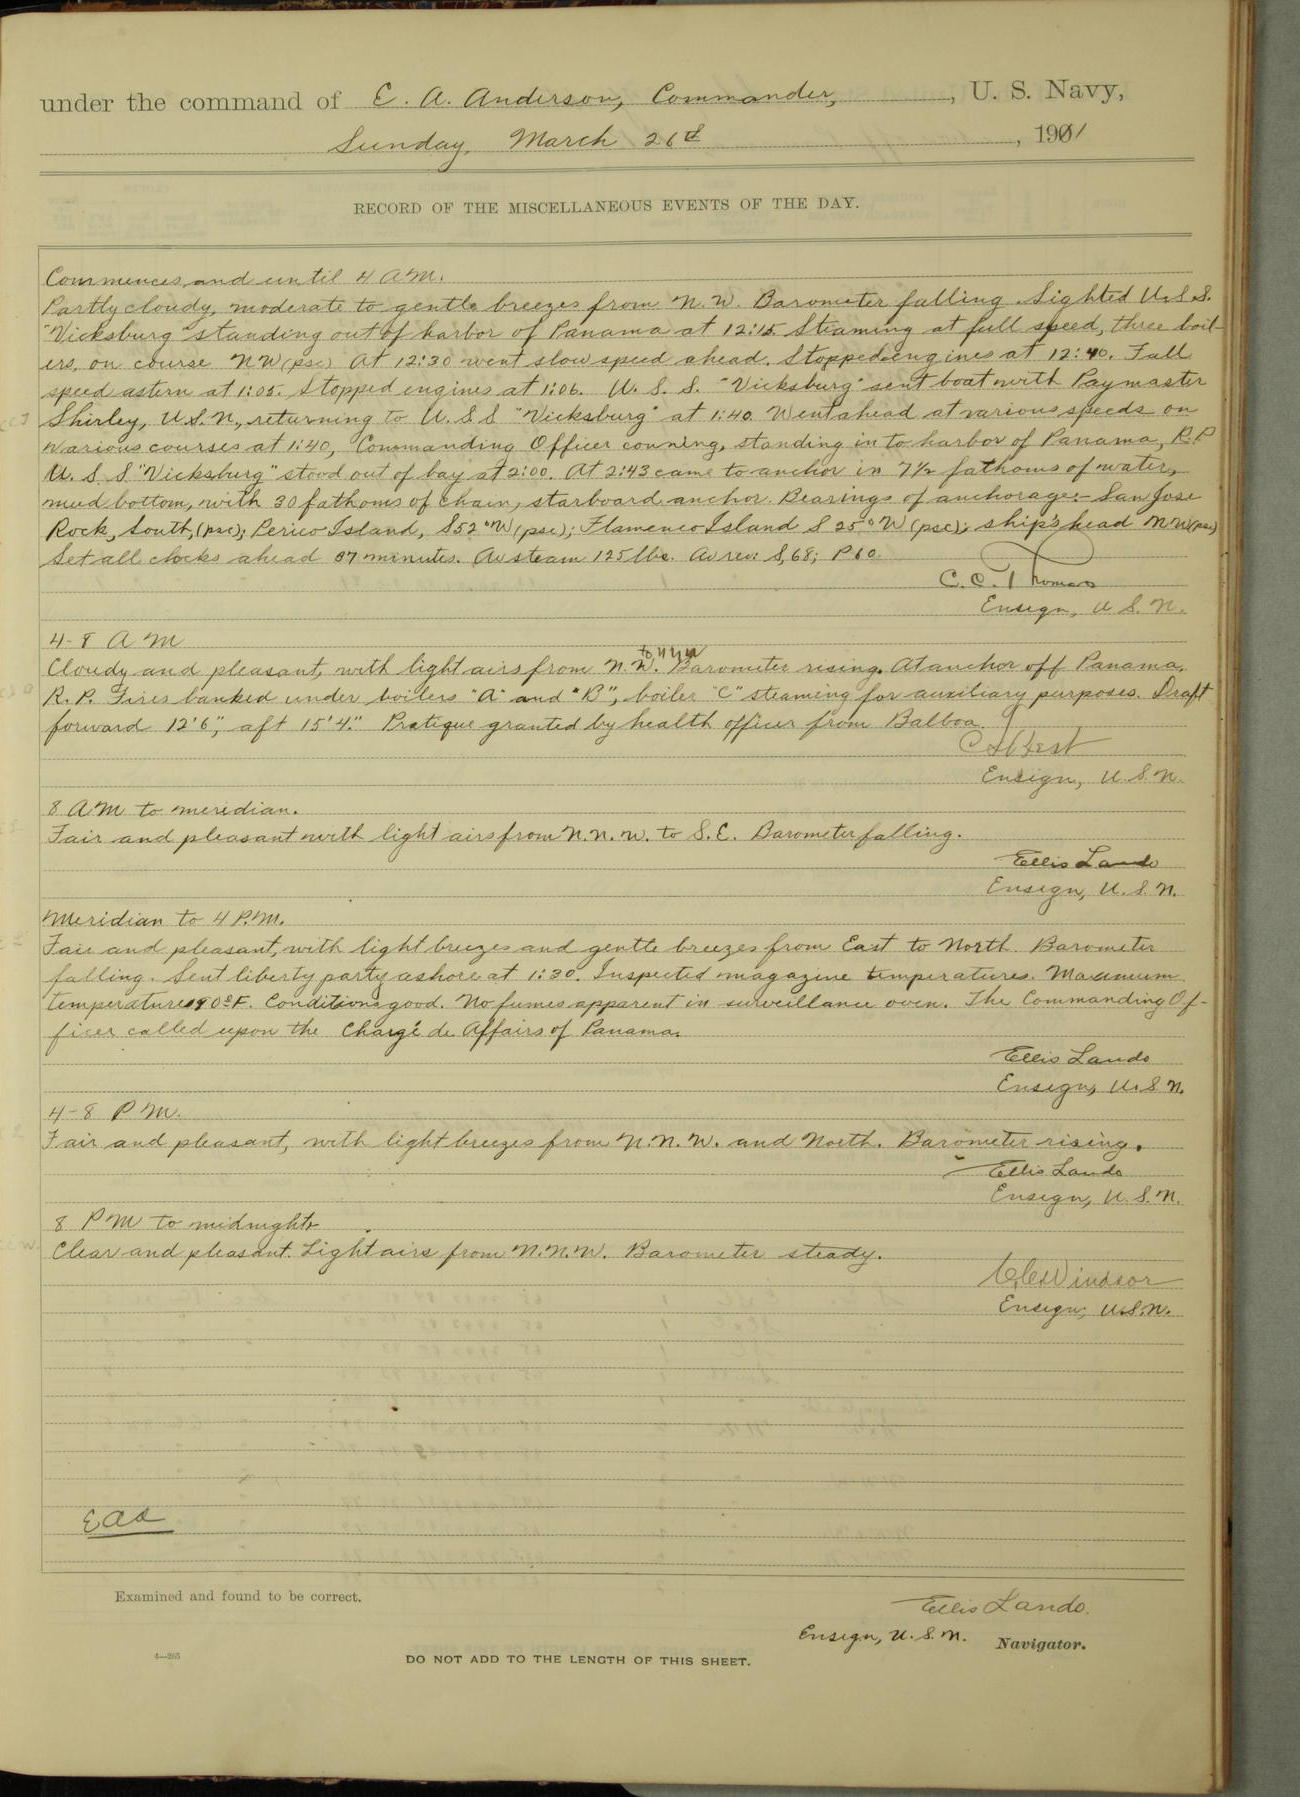 under the command of E. A. Anderson, Commander, , U. S. Navy,
Sunday, March 26th , 1901
RECORD OF THE MISCELLANEOUS EVENTS OF THE DAY.
Commences and until 4 A.M.
Partly cloudy, moderate to gentle breezes from N.W. Barometer falling. Sighted U.S.S.
"Vicksburg" standing out of harbor of Panama at 12:15. Steaming at full speed, three boil-
ers, on course NW (psc) At 12:30 went slow speed ahead. Stopped engines at 12:40. Full
speed astern at 1:05. Stopped engines at 1:06. U. S. S. "Vicksburg" sent boat with Paymaster
Shirley, U.S.N., returning to U.S.S "Vicksburg" at 1:40. Went ahead at various speeds on
various courses at 1:40, Commanding Officer conning, standing in to harbor of Panama, R.P.
U. S. S "Vicksburg" stood out of bay at 2:00. At 2:43 came to anchor in 7½ fathoms of water,
mud bottom, with 30 fathoms of chain, starboard anchor. Bearings of anchorage:- San Jose
Rock, South, (psc); Perico Island, S52°W (psc); Flamenco Island S 25°W (psc); ship's head NW (psc)
Set all clocks ahead 07 minutes. Av steam 125 lbs. Av rev: S,68; P60.
C. C. Thomas
Ensign, U. S. N.
4-8 A M
Cloudy and pleasant, with light airs from N.W. to NNW Barometer rising. At anchor off Panama,
R. P. Fires banked under boilers "A" and "B", boiler "C" steaming for auxiliary purposes. Draft
forward 12'6", aft 15'4". Pratique granted by health officer from Balboa.
Ensign, U. S. N.
8 AM to meridian.
Fair and pleasant with light airs from N.N.W. to S.E. Barometer falling.
Ellis Lando
Ensign, U. S. N.
Meridian to 4 P.M.
Fair and pleasant, with light breezes and gentle breezes from East to North. Barometer
falling. Sent liberty party ashore at 1:30. Inspected magazine temperatures. Maximum
temperature 90°F. Conditions good. No fumes apparent in surveillance oven. The Commanding Of-
ficer called upon the Chargé de Affairs of Panama.
Ellis Lando
Ensign, U. S. N.
4-8 P M.
Fair and pleasant, with light breezes from N.N.W. and North. Barometer rising.
Ellis Lando
Ensign, U. S. N.
8 PM to midnight
Clear and pleasant. Light airs from N.N.W. Barometer steady.
Windsor
Ensign, U.S.N.
EAA
Examined and found to be correct.
Ellis Lando.
Ensign, U. S. N. Navigator.
DO NOT ADD TO THE LENGTH OF THIS SHEET.